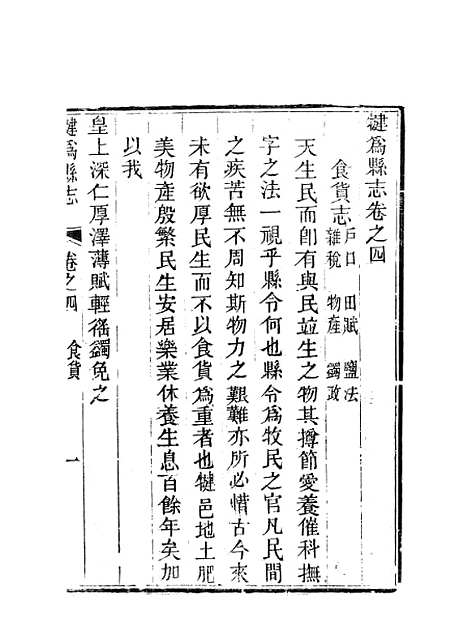 犍爲縣志卷之四
食貨志 戶口 田賦 鹽法
雜稅 物產 蠲政
天生民而卽有與民竝生之物其撙節愛養催科撫
字之法一視乎縣令何也縣令爲牧民之官凡民間
之疾苦無不周知斯物力之艱難亦所必惜古今來
未有欲厚民生而不以食貨爲重者也犍邑地土肥
美物產殷繁民生安居樂業休養生息百餘年矣加
以我
皇上深仁厚澤薄賦輕徭蠲免之
犍爲縣志 卷之四 食貨 一